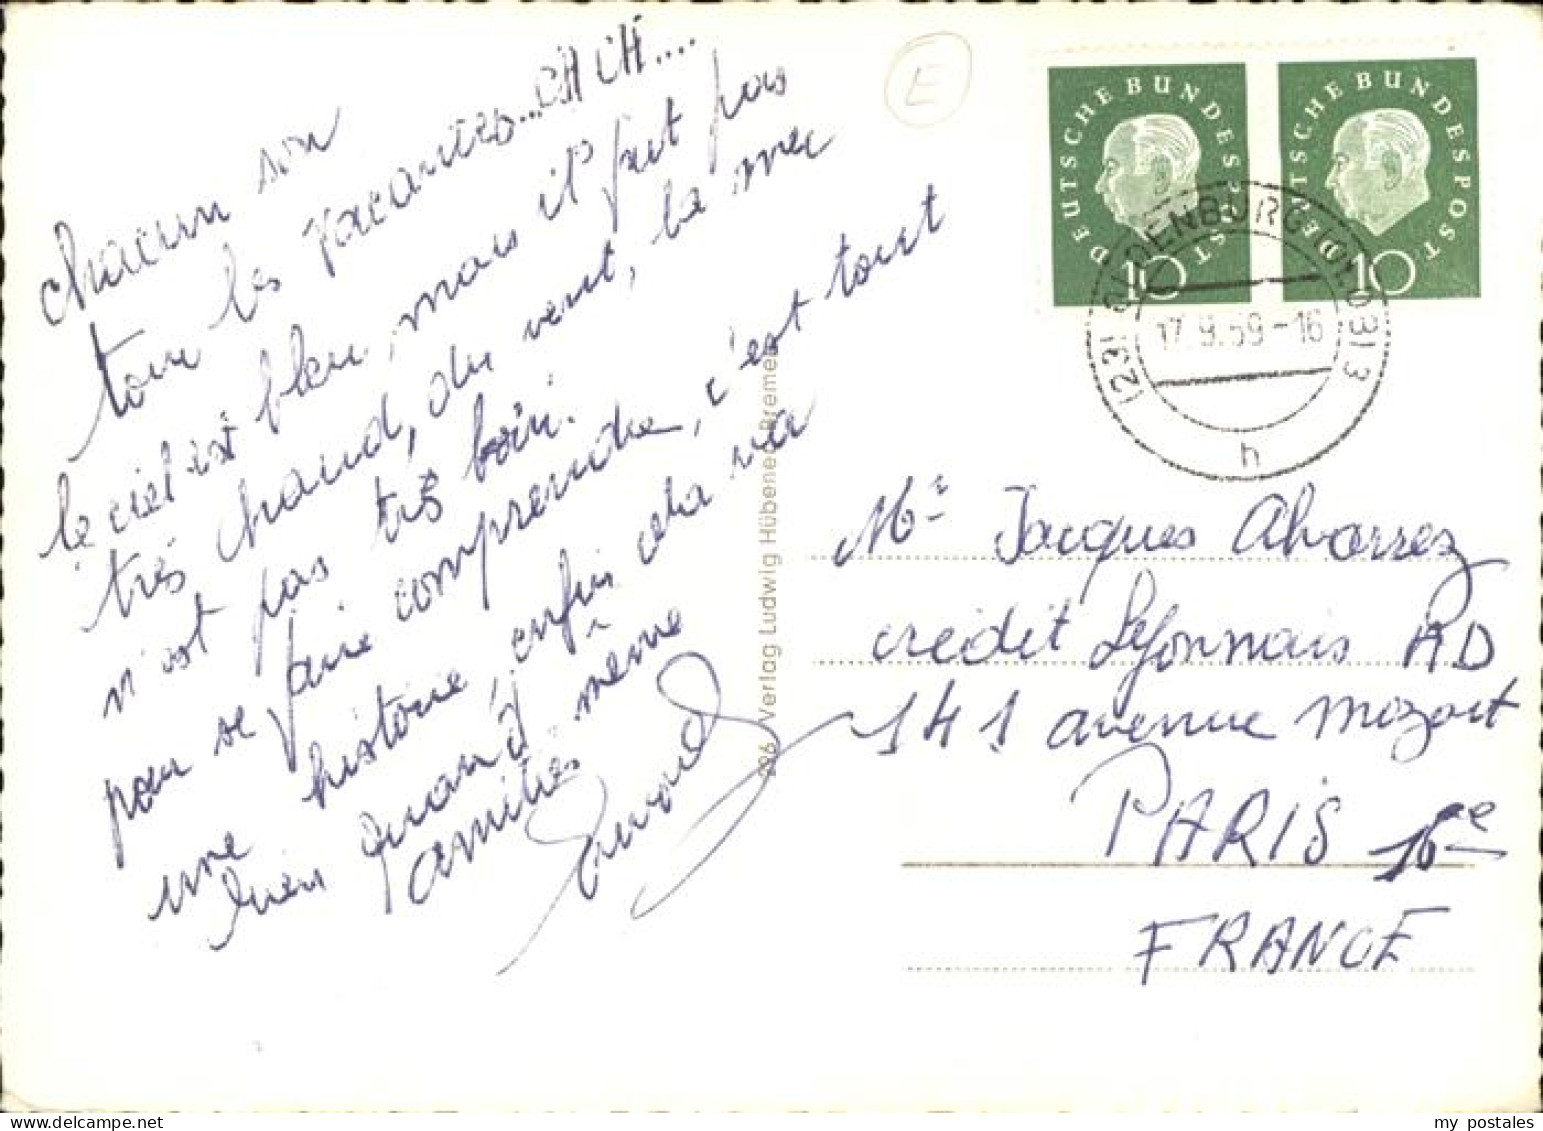 chacun son
tour les vacances...CH CH....
le ciel est bleu, mais il fait pas
très chaud, du vent, la mer
n'est pas très loin.
pour se faire comprendre, c'est tout
une histoire, enfin cela va
bien quand même
amitiés
E
DEUTSCHE BUNDESPOST
10
DEUTSCHE BUNDESPOST
10
(23) OLDENBURG (OLDB) 3
17.9.59-16
h
Verlag Ludwig Hübener Bremen
Mr Jacques Alvarrez
crédit Lyonnais AD
141 avenue Mozart
PARIS 16e
FRANCE
my postales